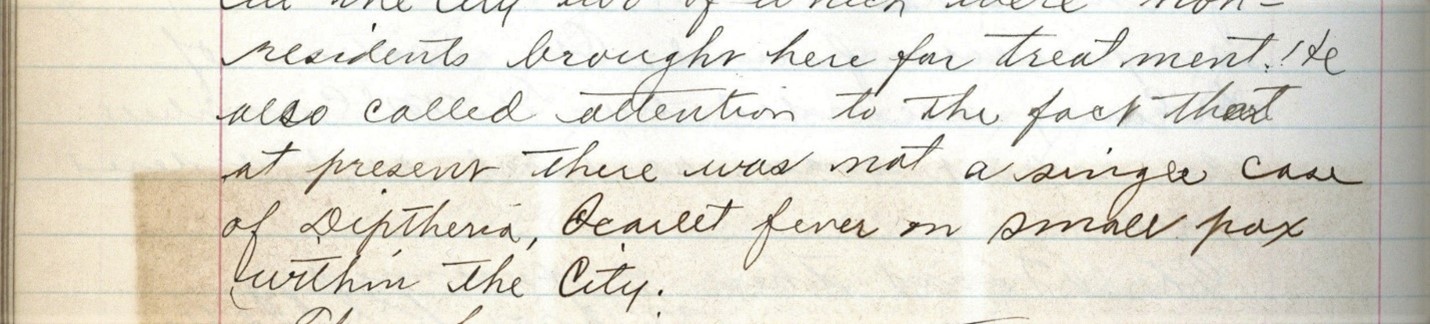 the City two of which were non-
residents brought here for treatment. He
also called attention to the fact that
at present there was not a single case
of Diptheria, Scarlet fever or small pox
within the City.